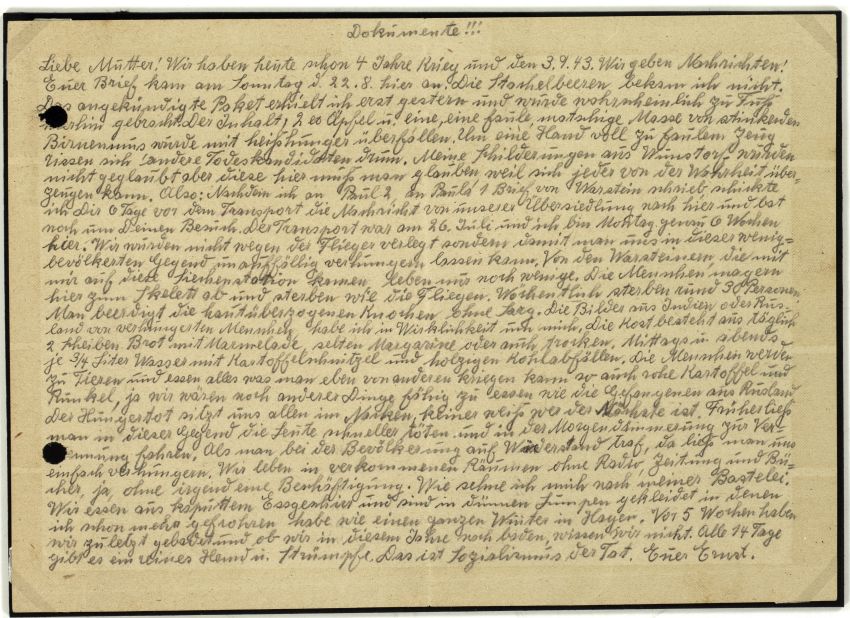 Dokumente!!!
Liebe Mutter! Wir haben heute schon 4 Jahre Krieg und den 3.9.43. Wir geben Nachrichten!
Euer Brief kam am Sonntag d. 22.8. hier an. Die Stachelbeeren bekam ich nicht.
Das angekündigte Paket erhielt ich erst gestern und wurde wahrscheinlich zu Fuß
hierhin gebracht. Der Inhalt, 2 Äpfel u. eine, eine faule matschige Masse von stinkenden
Birnenmus wurde mit Heißhunger überfallen. Um eine Hand voll zu faulem Zeug
rissen sich andere Todeskandidaten drum. Meine Schilderungen aus Wunstorf wurden
nicht geglaubt aber diese hier muss man glauben weil sich jeder von der Wahrheit über-
zeugen kann. Also: Nachdem ich an Paul 2 an Paula 1 Brief von Warstein schrieb schickte
ich Dir 6 Tage vor dem Transport die Nachricht von unserer Übersiedlung nach hier und bat
noch um Deinen Besuch. Der Transport war am 26. Juli und ich bin Montag genau 6 Wochen
hier. Wir wurden nicht wegen der Flieger verlegt sondern damit man uns in dieser wenig=
bevölkerten Gegend unauffällig verhungern lassen kann. Von den Warsteinern die mit
mir auf diese Siechenstation kamen leben nur noch wenige. Die Menschen magern
hier zum Skelett ab und sterben wie die Fliegen. Wöchentlich sterben rund 30 Personen
Man beerdigt die hautüberzogenen Knochen ohne Sarg. Die Bilder aus Indien oder Rus-
land von verhungerten Menschen habe ich in Wirklichkeit um mich. Die Kost besteht aus täglich
2 Scheiben Brot mit Marmelade, selten Margarine oder auch trocken. Mittags u. abends
je 3/4 Liter Wasser mit Kartoffelschnitzel und holzigen Kohlabfällen. Die Menschen werden
zu Tieren und essen alles was man eben von anderen kriegen kann so auch rohe Kartoffel und
Runkel, ja wir wären noch anderer Dinge fähig zu essen wie die Gefangenen aus Rusland
Der Hungertot sitzt uns allen im Nacken, keiner weiß wer der Nächste ist. Früher ließ
man in dieser Gegend die Leute schneller töten und in der Morgendämmerung zur Ver-
brennung fahren. Als man bei der Bevölkerung auf Widerstand traf, da ließ man uns
einfach verhungern. Wir leben in verkommenen Räumen ohne Radio, Zeitung und Bü-
cher, ja, ohne irgend eine Beschäftigung. Wie sehne ich mich nach meiner Bastelei.
Wir essen aus kaputtem Essgeschirr und sind in dünnen Lumpen gekleidet in denen
ich schon mehr gefrohren habe wie einen ganzen Winter in Hagen. Vor 5 Wochen haben
wir zuletzt gebadet und ob wir in diesem Jahre noch baden, wissen wir nicht. Alle 14 Tage
gibt es ein reines Hemd u. Strümpfe. Das ist Sozialismus der Tat. Euer Ernst.